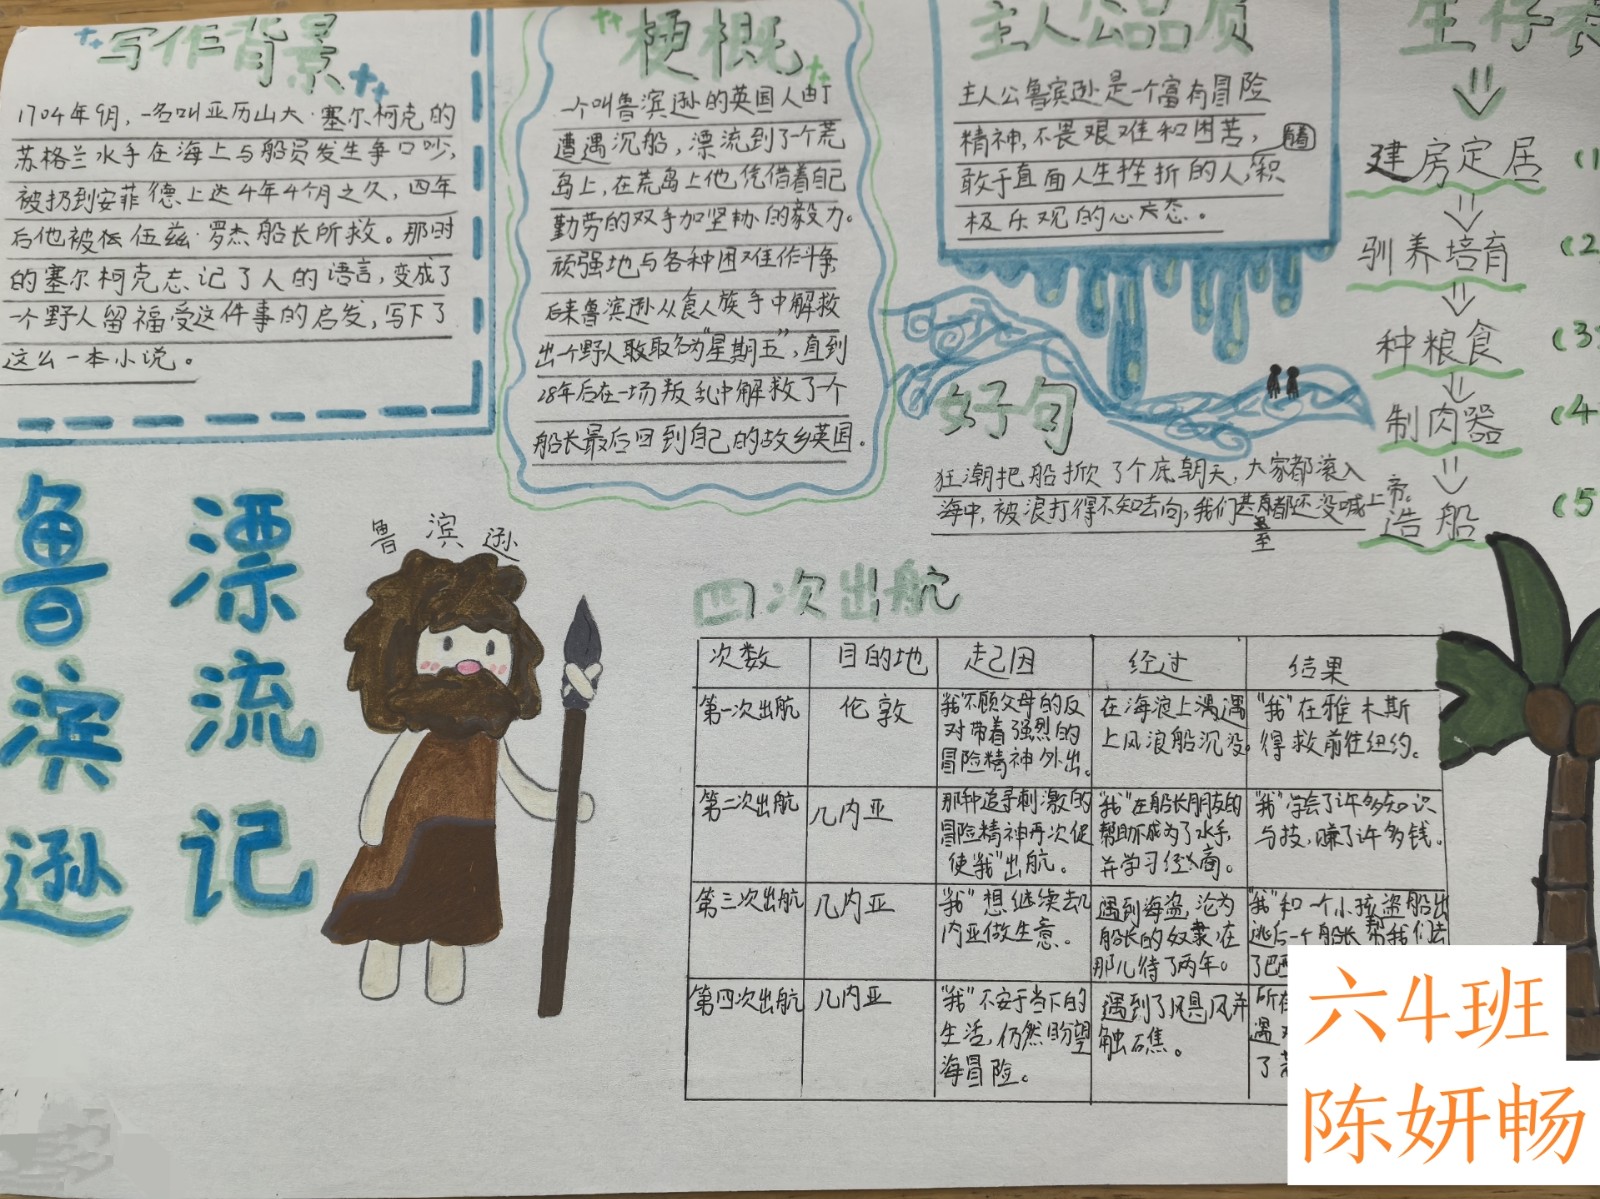 写作背景
1704年9月,一名叫亚历山大·塞尔柯克的
苏格兰水手在海上与船员发生争口吵,
被扔到安菲德上达4年4个月之久,四年
后他被伍兹·罗杰船长所救。那时
的塞尔柯克忘记了人的语言,变成了
一个野人留福受这件事的启发,写下了
这么一本小说。
梗概
一个叫鲁滨逊的英国人由于
遭遇沉船,漂流到了个荒
岛上,在荒岛上他凭借着自己
勤劳的双手加坚协的毅力。
顽强地与各种困难作斗争,
后来鲁滨逊从食人族手中解救
出一个野人敢取名为“星期五”,直到
28年后在一场叛乱中解救了一个
船长最后回到自己的故乡英国.
主人公品质
主人公鲁滨逊是一个富有冒险
精神,不畏艰难和困苦,
敢于直面人生挫折的人,有着积
极乐观的心态。
生存表
建房定居
(1
驯养培育
(2
种粮食
(3
制肉器
(4
造船
(5
好句
狂潮把船掀了个底朝天,大家都滚入
海中,被浪打得不知去向,我们甚至都还没喊上帝。
鲁滨逊
漂流记
鲁滨逊
四次出航
次数 目的地 起因 经过 结果
第一次出航 伦敦 “我”不顾父母的反对带着强烈的冒险精神外出。 在海浪上遇遇上风浪船沉没。 “我”在雅木斯得救前往纽约。
第二次出航 几内亚 那种追寻刺激的冒险精神再次促使“我”出航。 “我”在船长朋友的帮助下成为了水手,并学习经商。 “我”学会了许多知识与技,赚了许多钱。
第三次出航 几内亚 “我”想继续去几内亚做生意。 遇到海盗,沦为船长的奴隶,在那儿待了两年。 “我”和一个小孩盗船出逃后一个船长帮我们去了巴西
第四次出航 几内亚 “我”不安于当下的生活,仍然盼望海冒险。 遇到了飓风并触礁。 所有 遇 了
六4班
陈妍畅